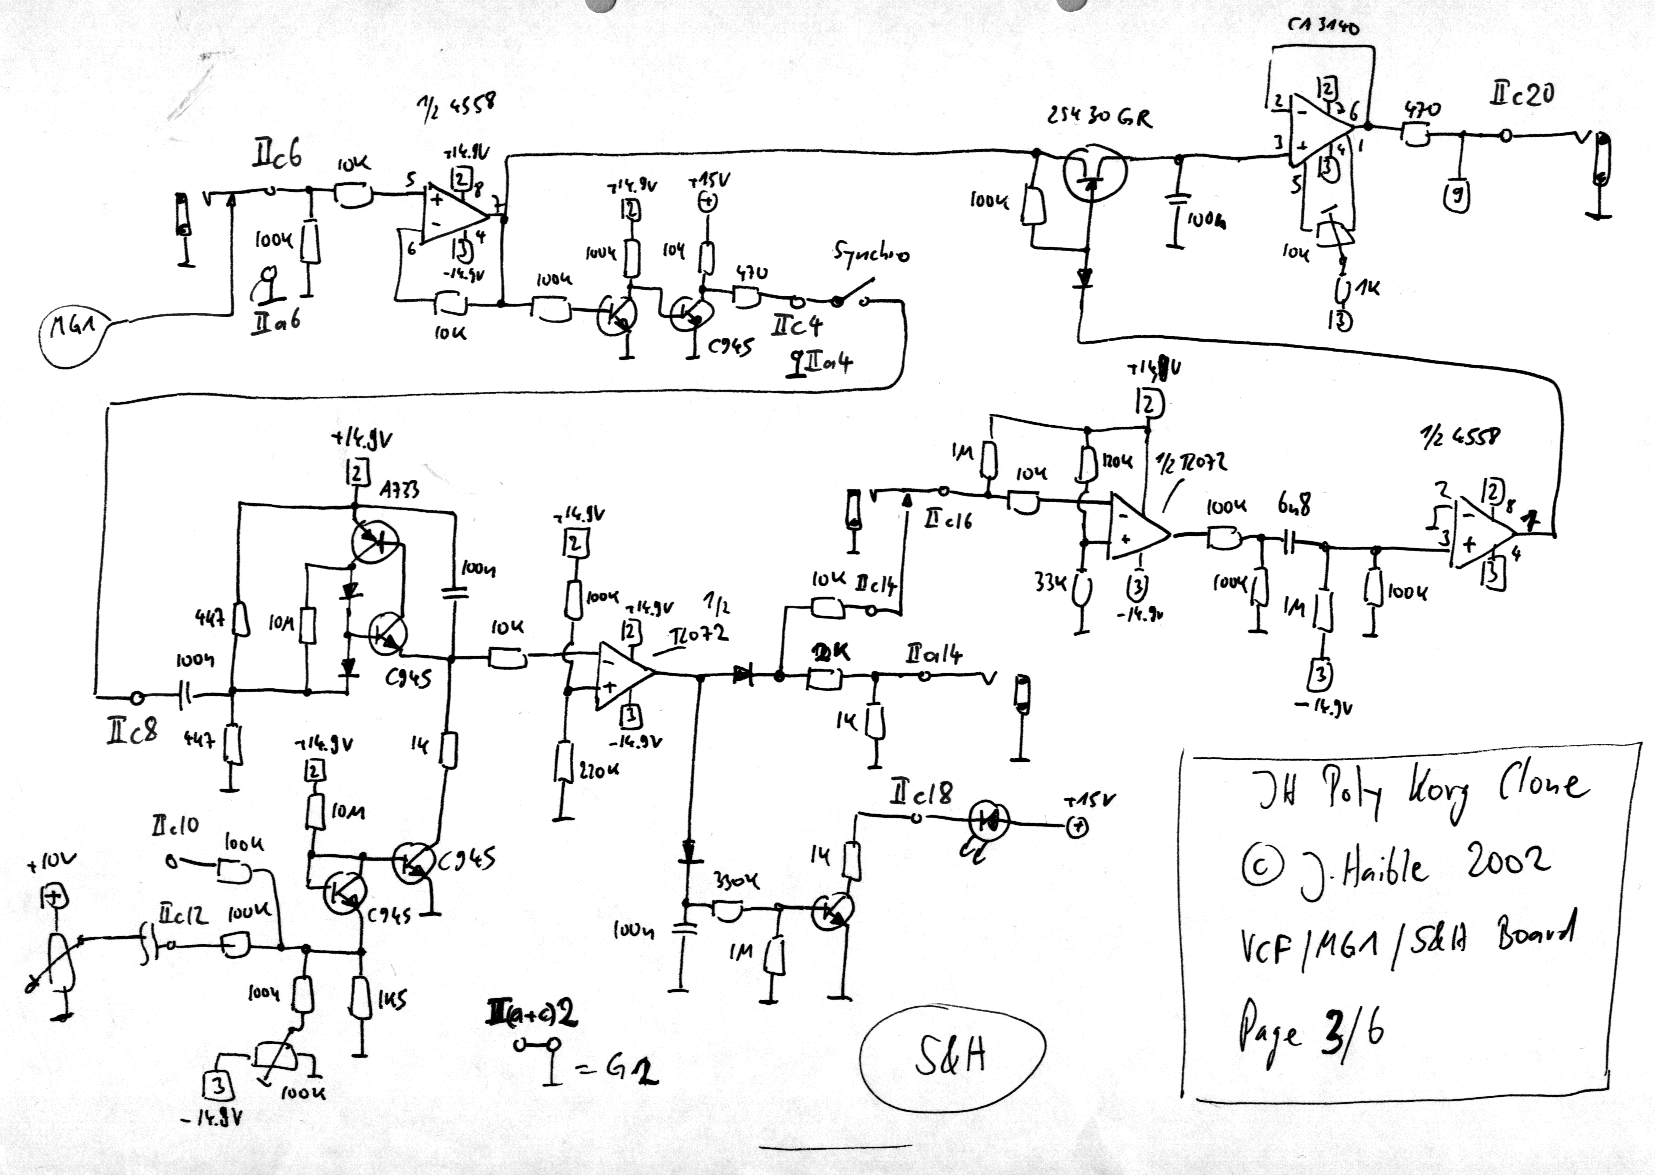 CA3140
1/2 4558
2SK30GR
IIc20
470
2
2
6
3
1
4
5
3
9
IIc6
10K
+14.9V
2
8
5
7
6
4
3
-14.9V
100K
IIa6
MG1
10K
100K
+14.9V
2
100K
+15V
+
10K
470
Synchro
C945
IIc4
IIa4
100K
100n
10K
1K
3
+14.9V
2
A733
100n
4k7
10M
C945
100n
IIc8
4k7
10K
1K
+14.9V
2
100K
+14.9V
2
1/2
TL072
3
-14.9V
220K
10K
IIc14
IIa14
1K
IIc16
1M
10K
+14.9V
2
120K
1/2 TL072
33K
3
-14.9V
100K
6n8
100K
1M
100K
3
-14.9V
1/2 4558
2
2
8
3
1
4
3
+14.9V
2
10M
C945
C945
IIc10
100K
+10V
+
IIc12
100K
100K
1K5
3
100K
-14.9V
IIc18
+15V
+
1K
330K
100n
1M
II(a+c)2
= G2
S&H
JH Poly Korg Clone
© J. Haible 2002
VCF/MG1/S&H Board
Page 3/6